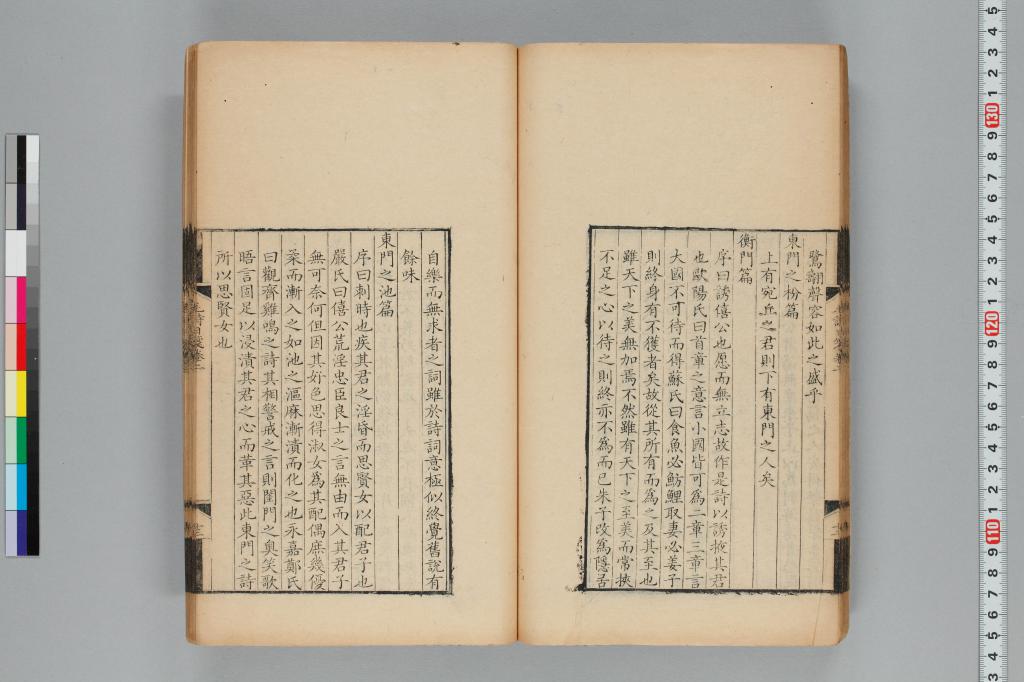 鷺翿聲容如此之盛乎
東門之枌篇
上有宛丘之君則下有東門之人矣
衡門篇
序曰誘僖公也愿而無立志故作是詩以誘掖其君
也歐陽氏曰首章之意言小國皆可為二章三章言
大國不可待而得蘇氏曰食魚必魴鯉取妻必姜子
則終身有不獲者矣故從其所有而為之及其至也
雖天下之美無加焉不然雖有天下之至美而常挾
不足之心以待之則終亦不為而已朱子改為隱者
自樂而無求者之詞雖於詩詞意極似終覺舊說有
餘味
東門之池篇
序曰刺時也疾其君之淫昏而思賢女以配君子也
嚴氏曰僖公荒淫忠臣良士之言無由而入其君子
無可奈何但因其好色思得淑女為其配偶庶幾優
柔而漸入之如池之漚麻漸漬而化之也永嘉鄭氏
曰觀齊雞鳴之詩其相警戒之言則閨門之奧笑歌
晤言固足以浸漬其君之心而革其惡此東門之詩
所以思賢女也